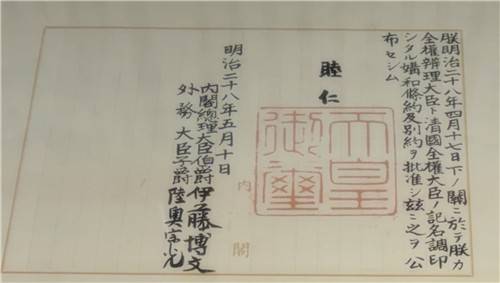 朕明治二十八年四月十七日下ノ關ニ於テ朕カ
全權辨理大臣ト清國全權大臣ノ記名調印
シタル媾和條約及別約ヲ批准シ茲ニ之ヲ公
布セシム
睦仁
天皇
御璽
明治二十八年五月十日
內閣總理大臣伯爵伊藤博文
外務大臣子爵陸奥宗光
內閣